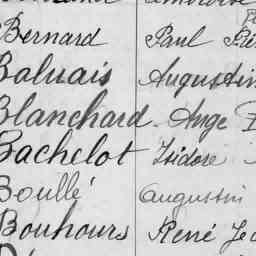 Bernard Paul
Baluais Augustin
Blanchard Ange
Bachelot Isidore
Boullé Augustin
Bouhours René